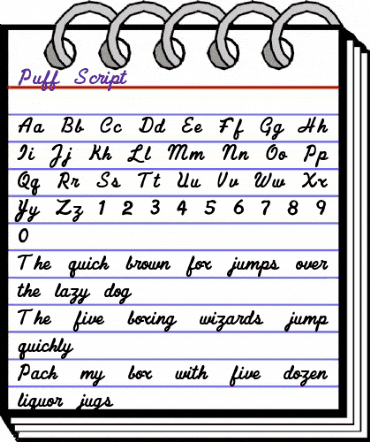 Puff Script
Aa Bb Cc Dd Ee Ff Gg Hh
Ii Jj Kk Ll Mm Nn Oo Pp
Qq Rr Ss Tt Uu Vv Ww Xx
Yy Zz 1 2 3 4 5 6 7 8 9
0
The quick brown fox jumps over
the lazy dog
The five boxing wizards jump
quickly
Pack my box with five dozen
liquor jugs